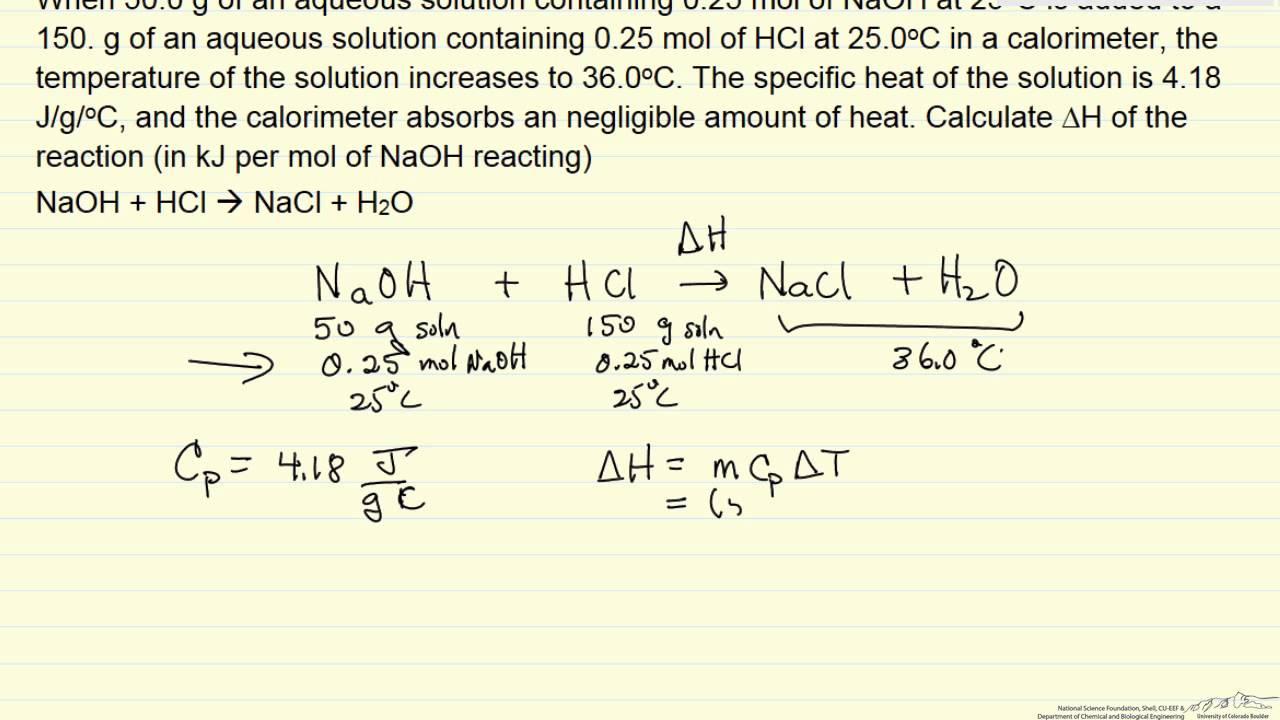 When 50.0 g of an aqueous solution containing 0.25 mol of NaOH at 25 °C is added to a
150. g of an aqueous solution containing 0.25 mol of HCl at 25.0°C in a calorimeter, the
temperature of the solution increases to 36.0°C. The specific heat of the solution is 4.18
J/g/°C, and the calorimeter absorbs an negligible amount of heat. Calculate ΔH of the
reaction (in kJ per mol of NaOH reacting)
NaOH + HCl → NaCl + H₂O
ΔH
NaOH + HCl → NaCl + H₂O
50 g soln 150 g soln
→ 0.25 mol NaOH 0.25 mol HCl 36.0 °C
25°C 25°C
Cp = 4.18 J/g C ΔH = m Cp ΔT
= (5
National Science Foundation, Shell, CU-EEF &
Department of Chemical and Biological Engineering University of Colorado Boulder